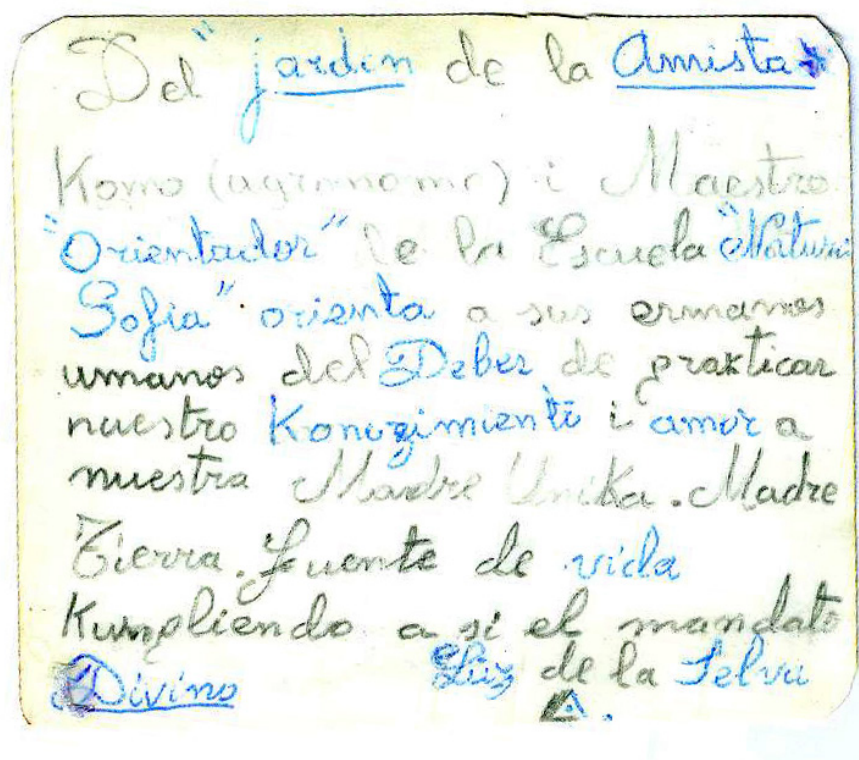 Del "jardin de la Amistad
Komo (agronomo) i Maestro
"Orientador" de la Escuela "Naturi
Sofia" orienta a sus ermanos
umanos del Deber de praxticar
nuestro Konozimiento i amor a
nuestra Madre Unika. Madre
Tierra. Fuente de vida
Kumpliendo a si el mandato
Divino Luz de la Selva